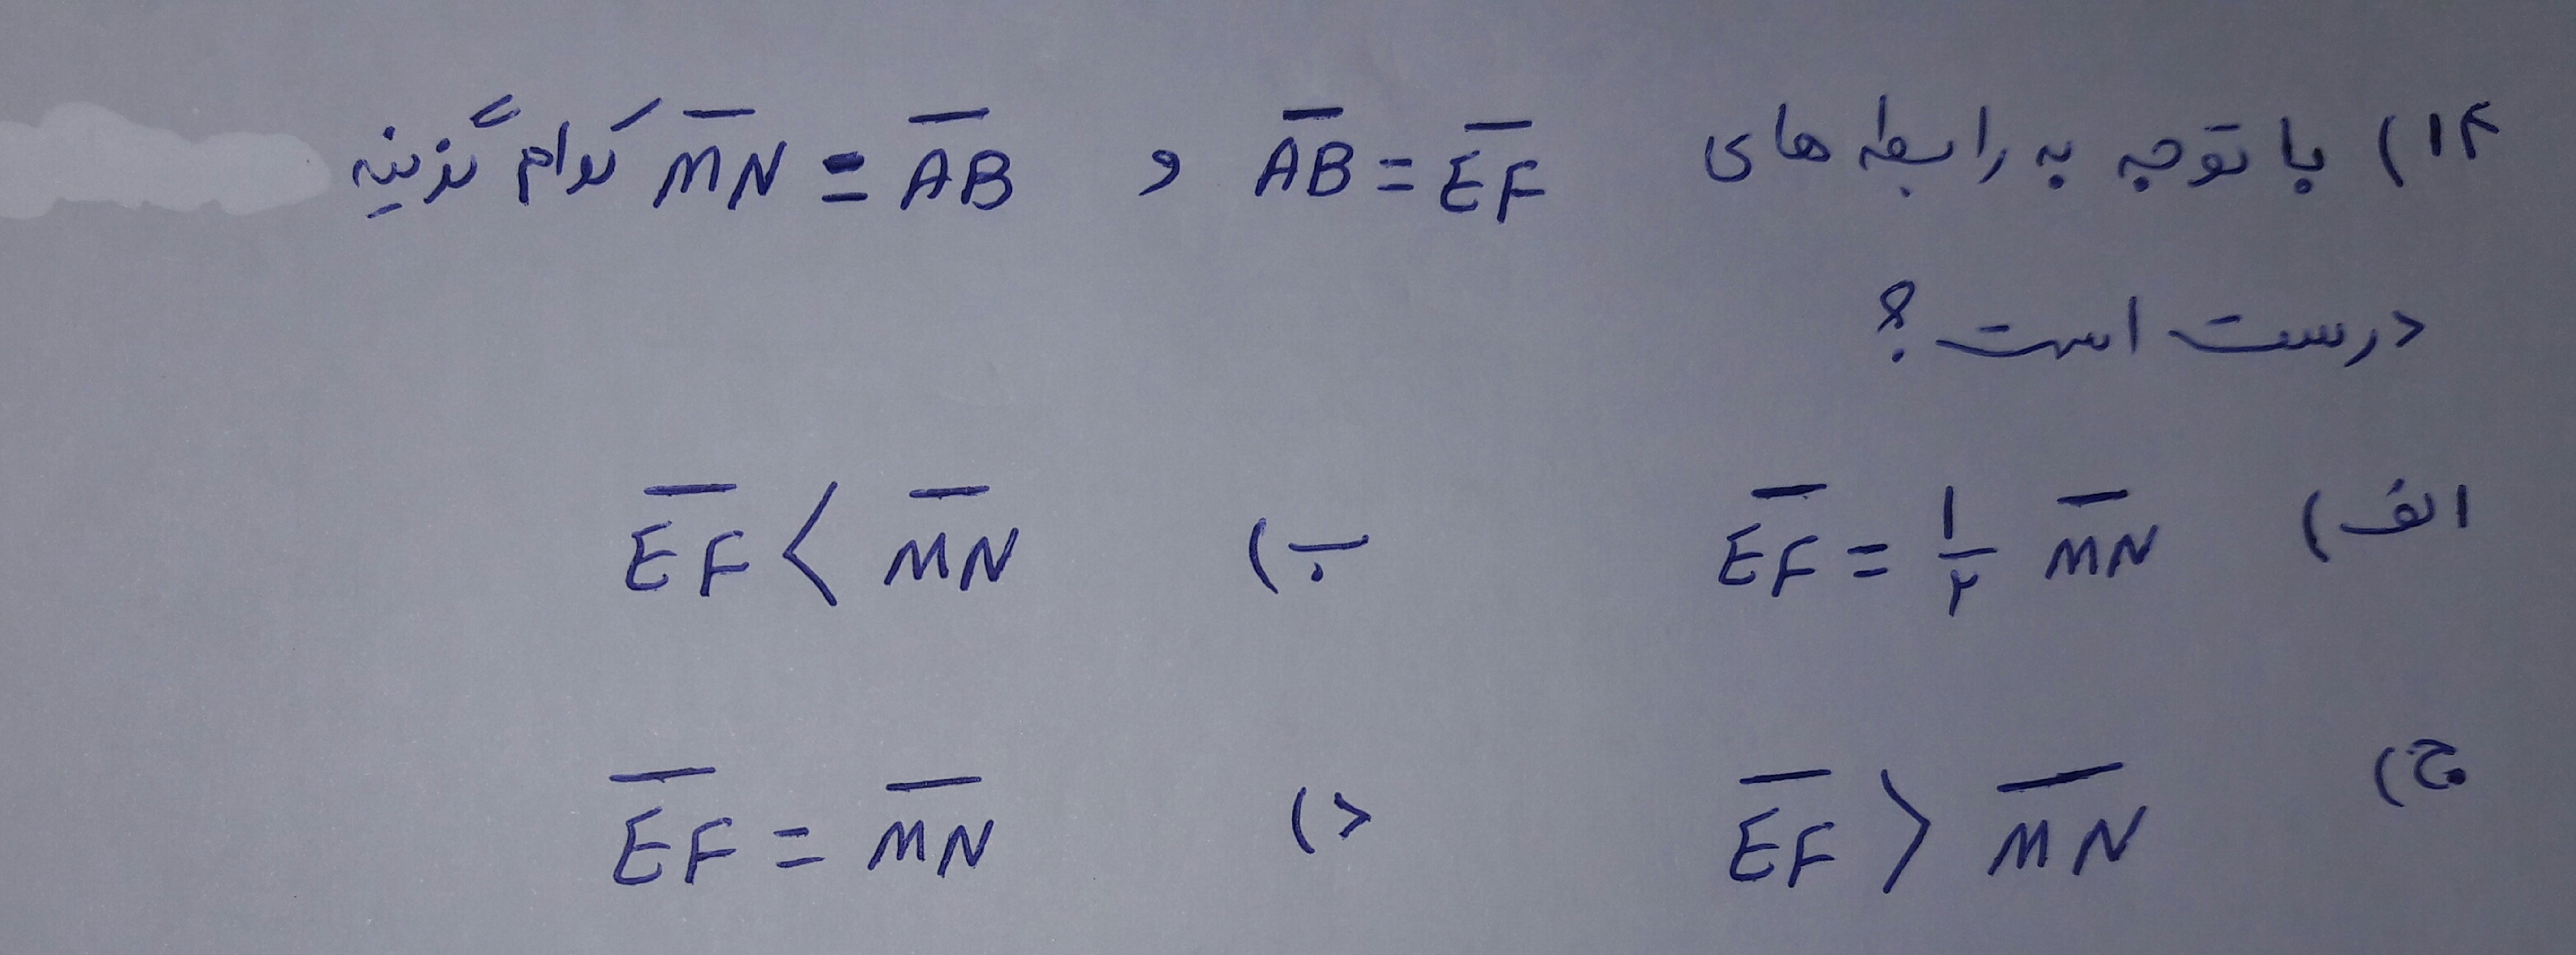 ۱۴) با توجه به رابطه های AB̅ = EF̅ و MN̅ = AB̅ کدام گزینه
درست است؟
الف) EF̅ = ۱/۲ MN̅ ب) EF̅ < MN̅
ج) EF̅ > MN̅ د) EF̅ = MN̅